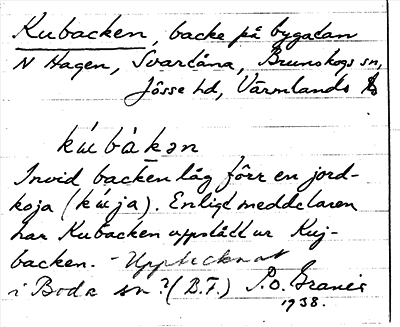 Kubacken, backe på bygatan
N Hagen, Svartåna, Brunskogs sn,
Jösse hd, Värmlands
kúbàkən
Invid backen låg förr en jord-
koja (kúja). Enligt meddelaren
har Kubacken uppstått ur Kuj-
backen. - Upptecknat
i Boda sn? (B.F.) P.O. Granér
1938.